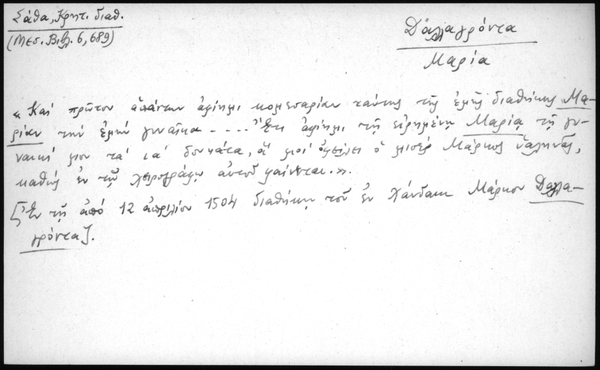 Σάθα, Κρητ. διαθ.
(Μεσ. Βιβλ. 6, 689)
Δαλλαγρόντα
Μαρία
« Καὶ πρῶτον ἁπάντων ἀφίημι κομεσαρίαν ταύτης τῆς ἐμῆς διαθήκης Μα-
ρίαν τὴν ἐμὴν γυναῖκα .... Ἔτι ἀφίημι τῇ εἰρημένῃ Μαρίᾳ τῇ γυ-
ναικί μου τὰ ια΄ δουκάτα, ἅ μοι ὀφείλει ὁ μισὲρ Μάρκος
καθὼς ἐν τῷ χειρογράφῳ αὐτοῦ φαίνεται ».
[Ἐν τῇ ἀπὸ 12 ἀπριλίου 1504 διαθήκῃ τοῦ ἐν Χάνδακι Μάρκου Δαλλα-
γρόντα].